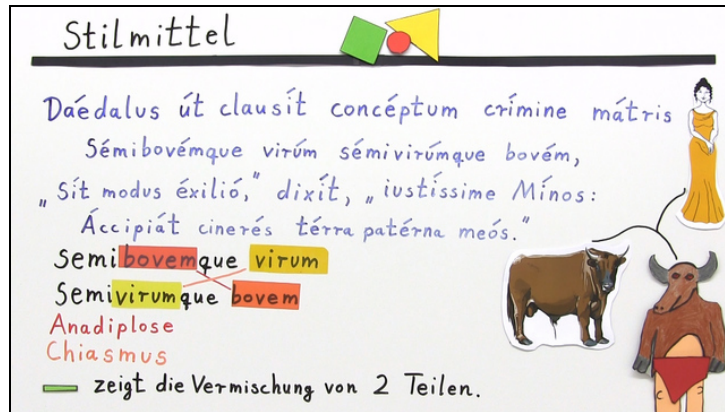 Stilmittel
Dáedalus út clausít concéptum crímine mátris
Sémibovémque virúm sémivirúmque bovém,
„Sít modus éxilió,“ dixít, „iustíssime Mínos:
Áccipiát cinerés térra patérna meós.“
Semibovemque virum
Semivirumque bovem
Anadiplose
Chiasmus
zeigt die Vermischung von 2 Teilen.